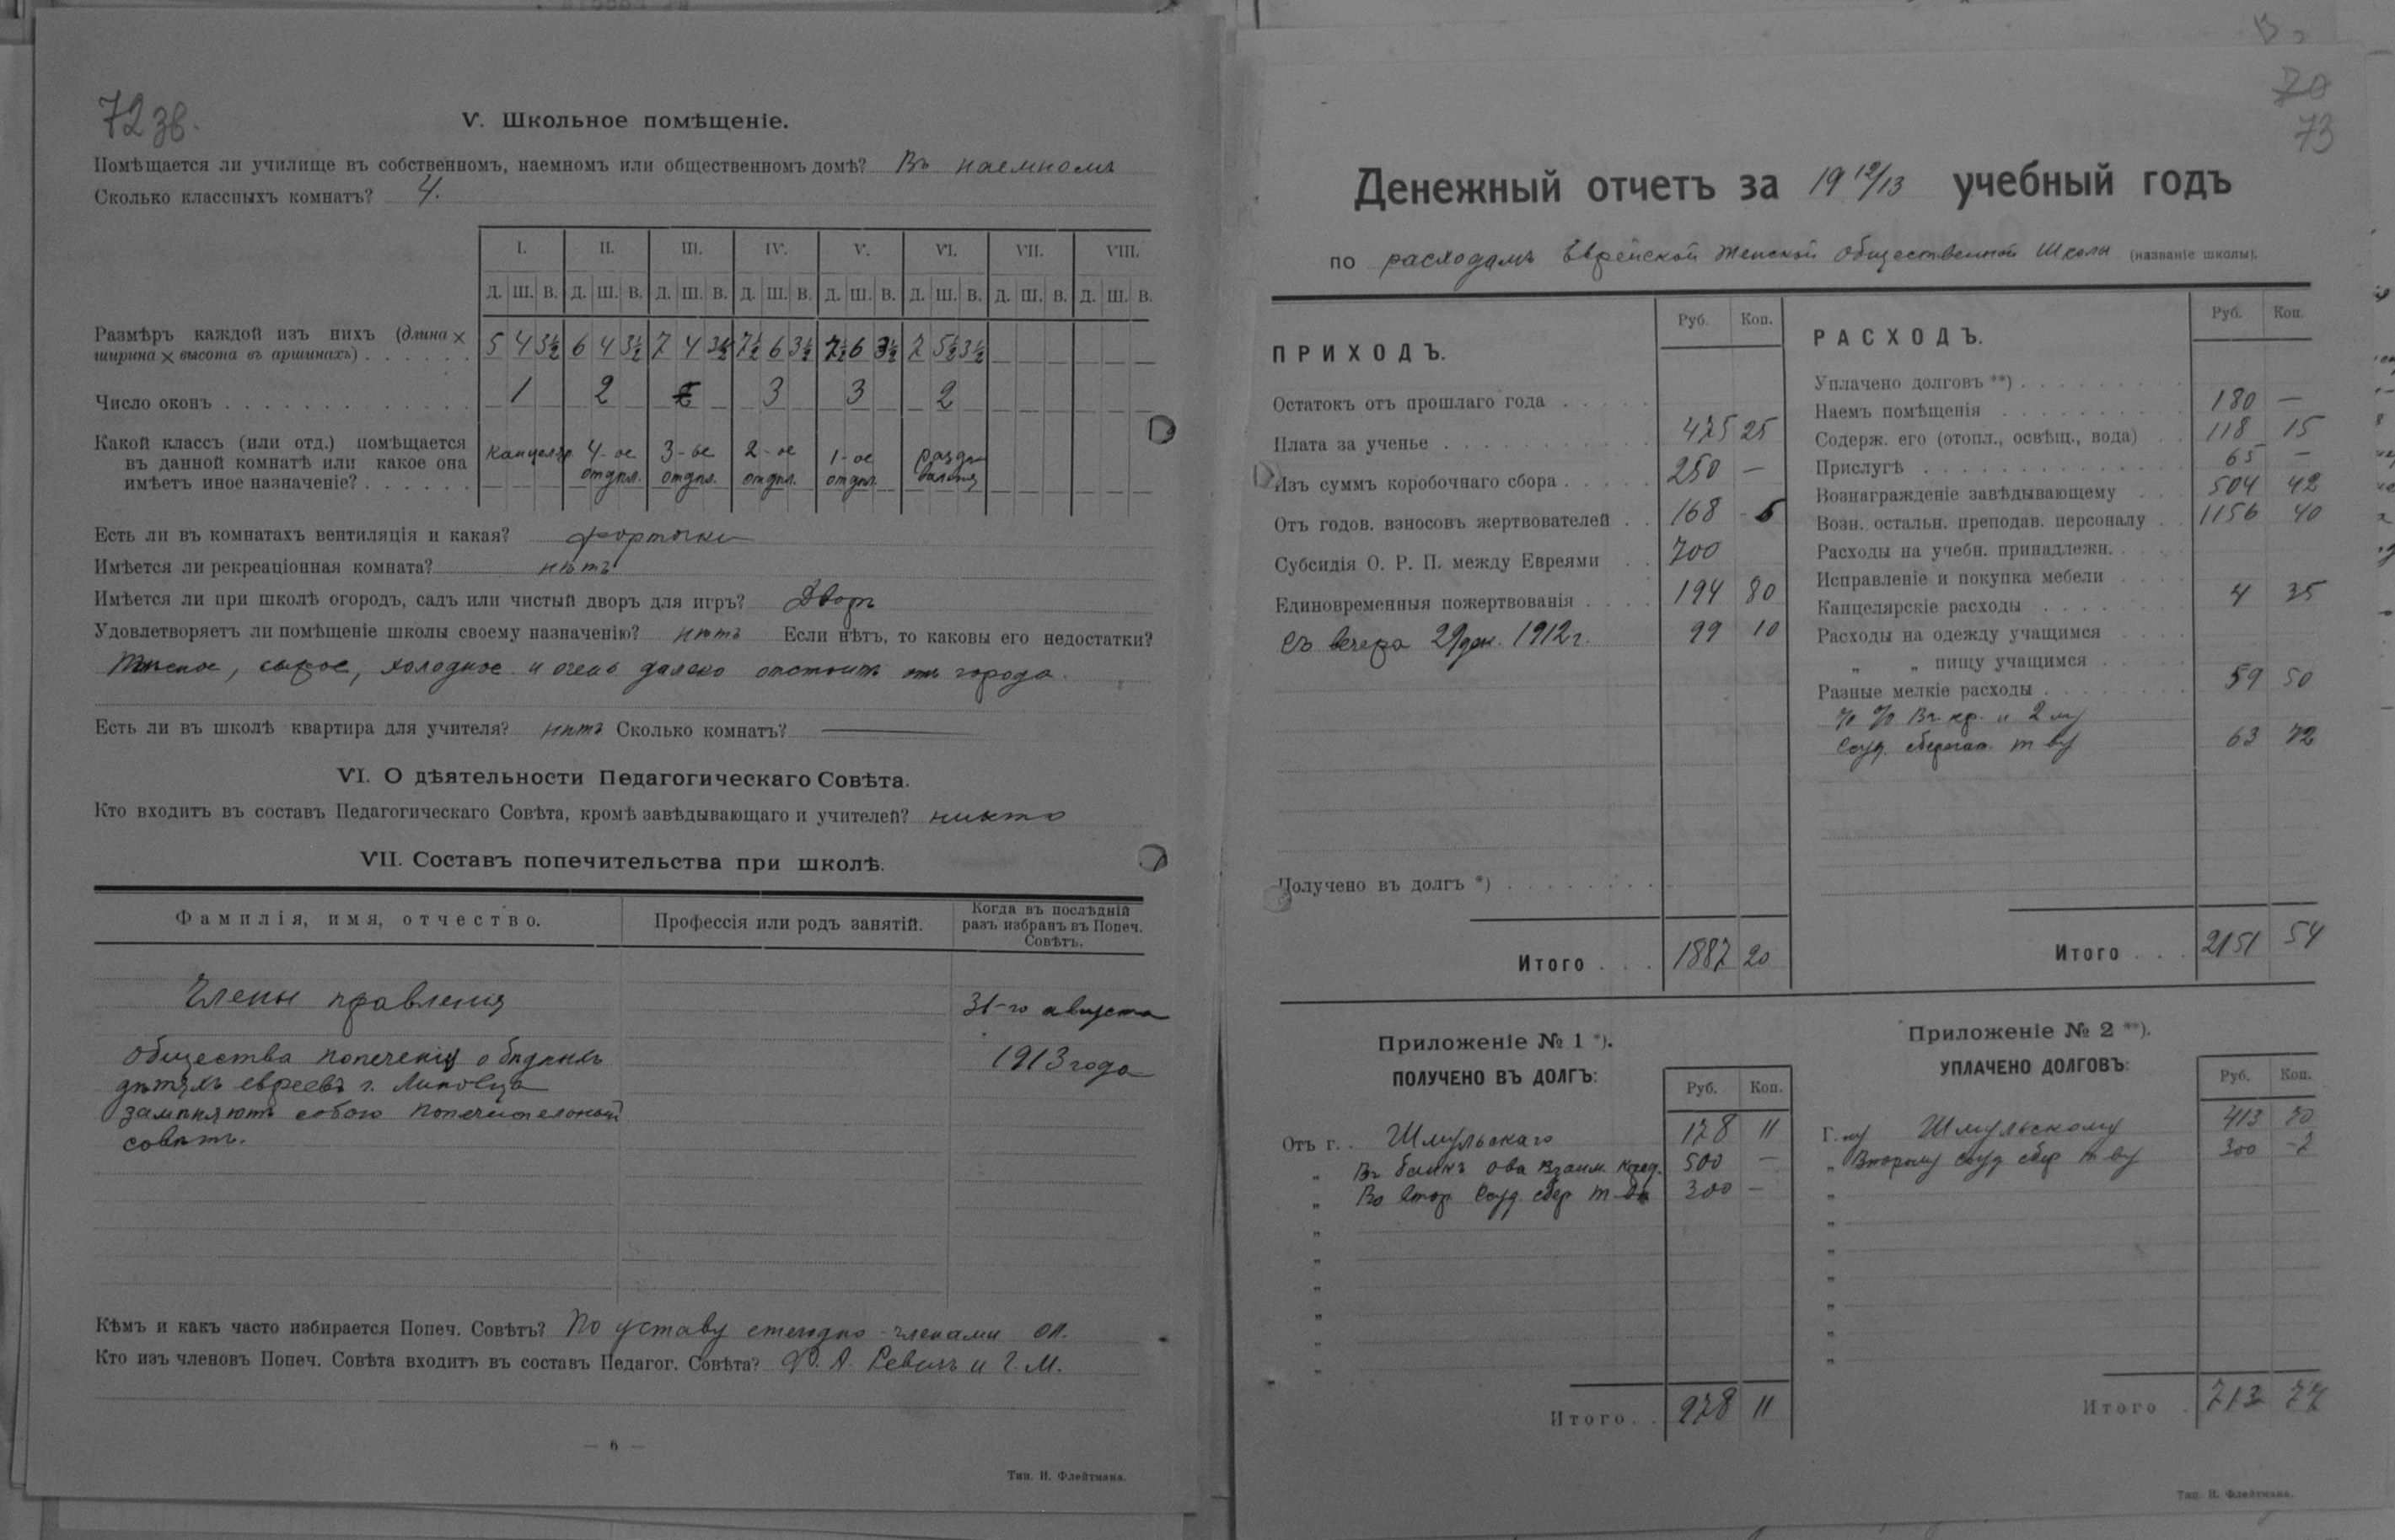 72 зв.
V. Школьное помѣщеніе.
Помѣщается ли училище въ собственномъ, наемномъ или общественномъ домѣ? Въ наемномъ
Сколько классныхъ комнатъ? 4.
I. II. III. IV. V. VI. VII. VIII.
Д. Ш. В. Д. Ш. В. Д. Ш. В. Д. Ш. В. Д. Ш. В. Д. Ш. В. Д. Ш. В. Д. Ш. В.
Размѣръ каждой изъ нихъ (длина ×
ширина × высота въ аршинахъ) 5 4 3½ 6 4 3½ 7 4 3½ 7½ 6 3½ 7½ 6 3½ 7 5½ 3½
Число оконъ 1 2 3 3 2
Какой классъ (или отд.) помѣщается
въ данной комнатѣ или какое она
имѣетъ иное назначеніе?
Канцеляр 4-ое отдѣл. 3-ье отдѣл. 2-ое отдѣл. 1-ое отдѣл.
Есть ли въ комнатахъ вентиляція и какая? форточки
Имѣется ли рекреаціонная комната? нѣтъ
Имѣется ли при школѣ огородъ, садъ или чистый дворъ для игръ? Дворъ
Удовлетворяетъ ли помѣщеніе школы своему назначенію? нѣтъ Если нѣтъ, то каковы его недостатки?
Тѣсное, сырое, холодное и очень далеко отстоитъ отъ города.
Есть ли въ школѣ квартира для учителя? нѣтъ Сколько комнатъ? —
VI. О дѣятельности Педагогическаго Совѣта.
Кто входитъ въ составъ Педагогическаго Совѣта, кромѣ завѣдывающаго и учителей? никто
VII. Составъ попечительства при школѣ.
Фамилія, имя, отчество. Профессія или родъ занятій. Когда въ послѣдній
разъ избранъ въ Попеч.
Совѣтъ.
Члены правленія 31-го августа
Общества попеченія о бѣдныхъ 1913 года
дѣтяхъ евреевъ г. Липовца
замѣняютъ собою попечительный
совѣтъ.
Кѣмъ и какъ часто избирается Попеч. Совѣтъ? По уставу ежегодно членами
Кто изъ членовъ Попеч. Совѣта входитъ въ составъ Педагог. Совѣта?
— 6 —
Тип. И. Флейтмана.
70
73
Денежный отчетъ за 1912/13 учебный годъ
по расходамъ Еврейской Женской Общественной Школы (названіе школы).
ПРИХОДЪ. Руб. Коп.
Остатокъ отъ прошлаго года
Плата за ученье 475 25
Изъ суммъ коробочнаго сбора 250 —
Отъ годов. взносовъ жертвователей 168 5
Субсидія О. Р. П. между Евреями 700
Единовременныя пожертвованія 194 80
Съ вечера 29 дек. 1912 г. 99 10
Получено въ долгъ *)
Итого 1887 20
РАСХОДЪ. Руб. Коп.
Уплачено долговъ **)
Наемъ помѣщенія 180 —
Содерж. его (отопл., освѣщ., вода) 118 15
Прислугѣ 65 —
Вознагражденіе завѣдывающему 504 42
Возн. остальн. преподав. персоналу 1156 40
Расходы на учебн. принадлежн.
Исправленіе и покупка мебели
Канцелярскіе расходы 4 35
Расходы на одежду учащимся
„ „ пищу учащимся
Разные мелкіе расходы 59 50
% % Вз. кр. и 2 му
Ссуд. сберегат. т ву 63 72
Итого 2151 54
Приложеніе № 1 *).
ПОЛУЧЕНО ВЪ ДОЛГЪ:
Руб. Коп.
Отъ г. Шмульскаго 178 11
„ Въ банкѣ о-ва Взаим. Кред. 500 —
„ Во втор. Ссуд. сбер. т-вѣ 300 —
Итого 978 11
Приложеніе № 2 **).
УПЛАЧЕНО ДОЛГОВЪ:
Руб. Коп.
Г. му Шмульскому 413 70
„ Второму ссуд сбер т ву 300 -7
Итого 713 77
Тип. И. Флейтмана.